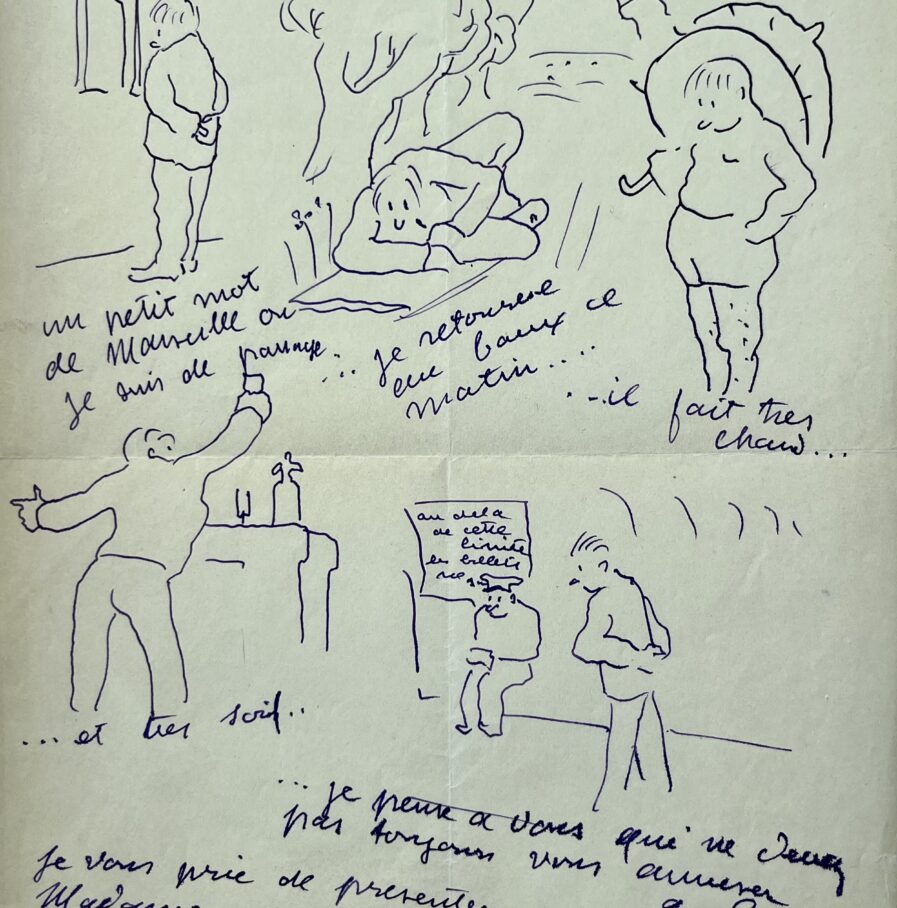 un petit mot
de Marseille où
je suis de passage
... je retourne
aux baux ce
matin....
...il fait tres
chaud...
... et tres soif..
au dela
de cette
limite
les billets
... je pense a vous qui ne devez
pas toujours vous amuser
je vous prie de presenter
Madame